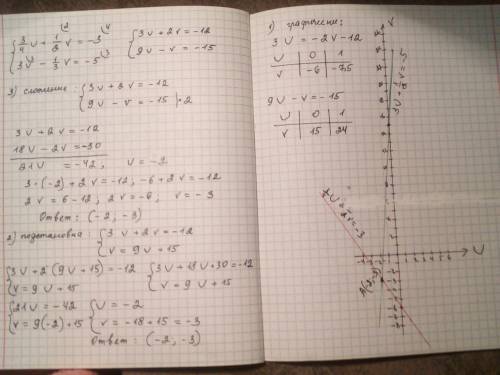 {3/4 U + 1/2 V = -3 |4 {3U + 2V = -12
{3U - 1/3 V = -5 |3 {9U - V = -15
3) сложение : {3U + 2V = -12
{9U - V = -15 | · 2
3U + 2V = -12
18U - 2V = -30
21U = -42, U = -2
3·(-2) + 2V = -12, -6 + 2V = -12
2V = 6 - 12, 2V = -6, V = -3
Ответ : (-2, -3)
2) подстановка : {3U + 2V = -12
{V = 9U + 15
{3U + 2(9U + 15) = -12 {3U + 18U + 30 = -12
{V = 9U + 15 {V = 9U + 15
{21U = -42 {U = -2
{V = 9(-2) + 15 {V = -18 + 15 = -3
Ответ : (-2, -3)
1) графически:
3U = -2V - 12
U | 0 | 1
V | -6 | -7,5
9U - V = -15
U | 0 | 1
V | 15 | 24
V
U
A(-2,-3)